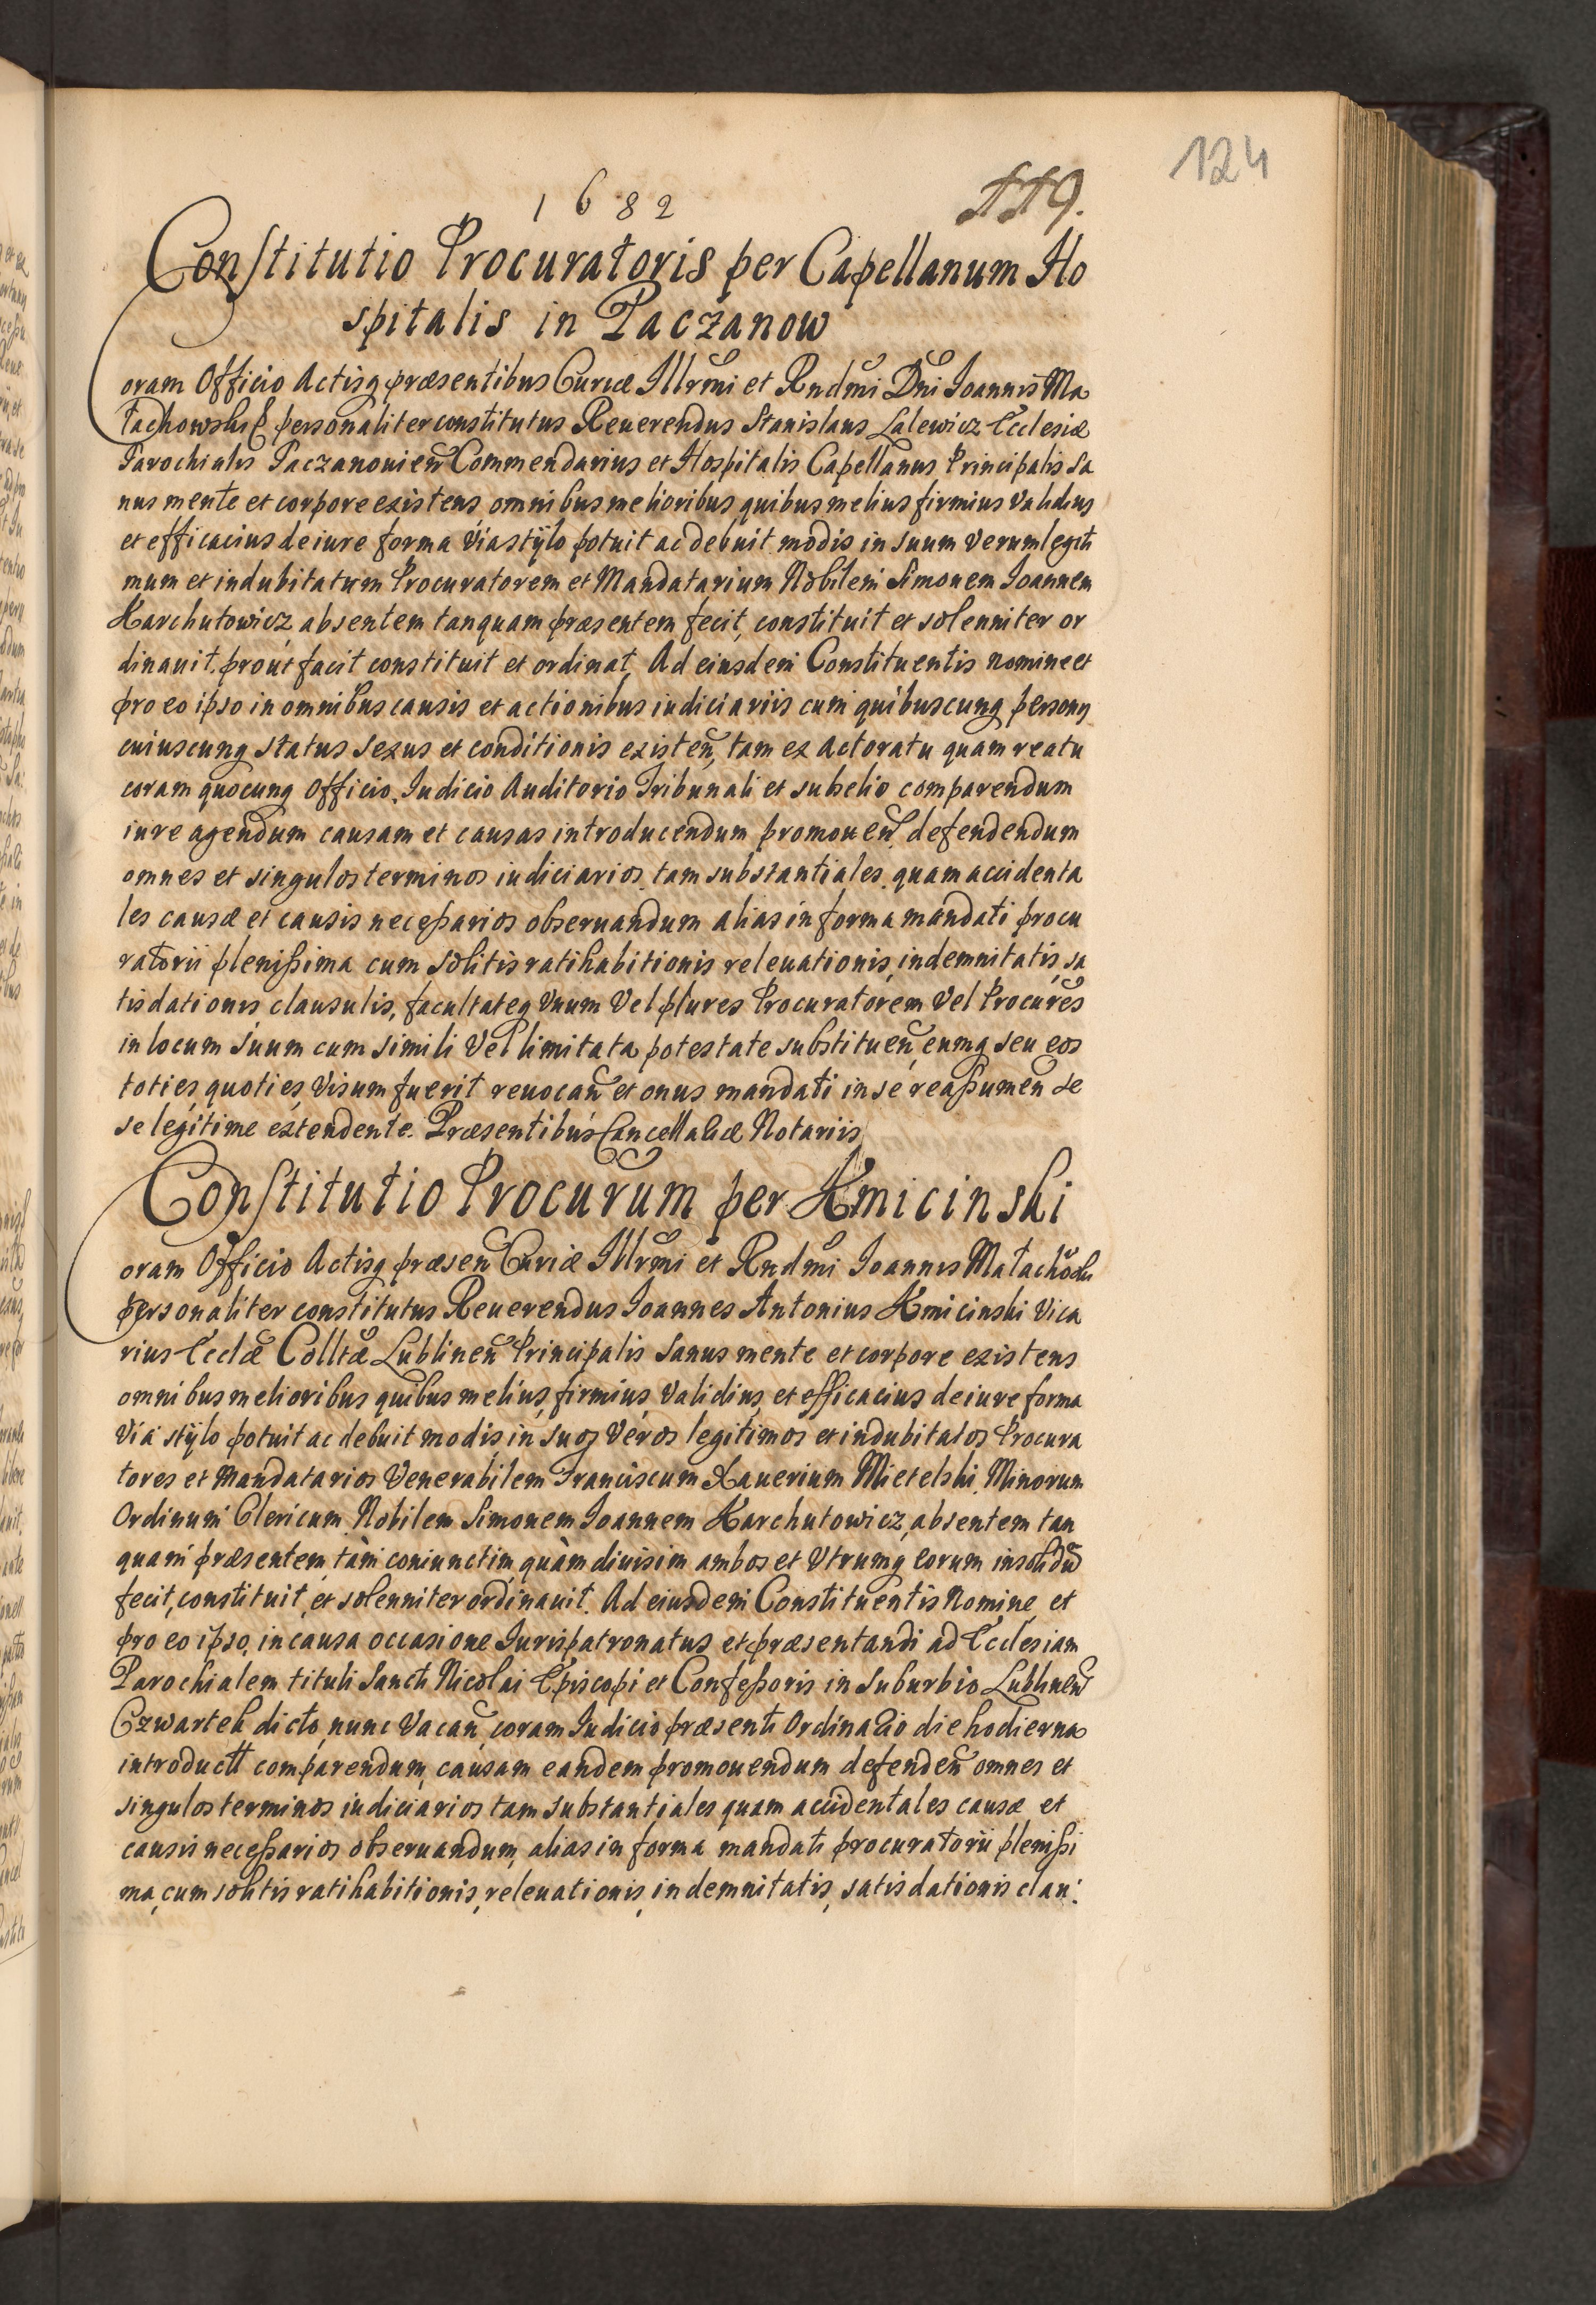 124
119.
1682
Constitutio Procuratoris per Capellanum Ho
spitalis in Paczanow
Coram Officio Actisq præsentibus Curiæ Illrmi et Rndmi Dni Ioannis Ma
łachowski personaliter constitutus Reuerendus Stanislaus Lalewicz Ecclesiæ
Parochialis Paczanouien Commendarius et Hospitalis Capellanus Principalis sa
nus mente et corpore existens omnibus melioribus quibus melius firmius validius
et efficacius de iure forma via stÿlo potuit ac debuit modis in suum verum legiti
mum et indubitatum Procuratorem et Mandatarium Nobilem Simonem Ioannem
Karchutowicz absentem tanquam præsentem fecit, constituit et solenniter or
dinauit, prout facit constituit et ordinat, Ad eiusdem Constituentis nomine et
pro eo ipso in omnibus causis et actionibus iudiciariis cum quibuscunq personis
cuiuscunq status sexus et conditionis existen, tam ex Actoratu quam reatu
coram quocunq Officio, Iudicio Auditorio Tribunali et subselio comparendum
iure agendum causam et causas introducendum promouen, defendendum
omnes et singulos terminos iudiciarios, tam substantiales, quam accidenta
les causæ et causis necessarios obseruandum alias in forma mandati procu
ratorii plenissima cum solitis ratihabitionis releuationis, indemnitatis, sa
tisdationis clausulis, facultateq vnum vel plures Procuratorem vel Procures
in locum suum cum simili vel limitata potestate substituen, eumq seu eos
toties quoties visum fuerit reuocan et onus mandati in se reassumen se
se legitime extendente. Præsentibus Cancellariæ Notariis
Constitutio Procurum per Kmicinski
Coram Officio Actisq præsen Curiæ Illrmi et Rndmi Ioannis Małachoski
personaliter constitutus Reuerendus Ioannes Antonius Kmicinski Vica
rius Ecclæ Colltæ Lublinen Principalis sanus mente et corpore existens
omnibus melioribus quibus melius, firmius, validius, et efficacius de iure forma
via stÿlo potuit ac debuit modis, in suos veros legitimos et indubitatos Procura
tores et Mandatarios Venerabilem Franciscum Xauerium Mietelski, Minorum
Ordinum Clericum, Nobilem Simonem Ioannem Karchutowicz, absentem tan
quam præsentem, tàm coniunctim, quàm diuisim ambos et Vtrumq eorum insolidu
fecit, constituit, et solenniter ordinauit. Ad eiusdem Constituentis Nomine, et
pro eo ipso, in causa occasione Iurispatronatus et præsentandi ad Ecclesiam
Parochialem tituli Sancti Nicolai Episcopi et Confessoris in suburbio Lublinen
Czwartek dicto, nunc vacan, coram Iudicio præsenti Ordinario die hodierna
introductt comparendum, causam eandem promouendum defenden omnes et
singulos terminos iudiciarios tam substantiales quam accidentales causæ et
causis necessarios obseruandum, alias in forma mandati procuratorii plenissi
ma, cum solitis ratihabitionis, releuationis, indemnitatis, satisdationis clau: